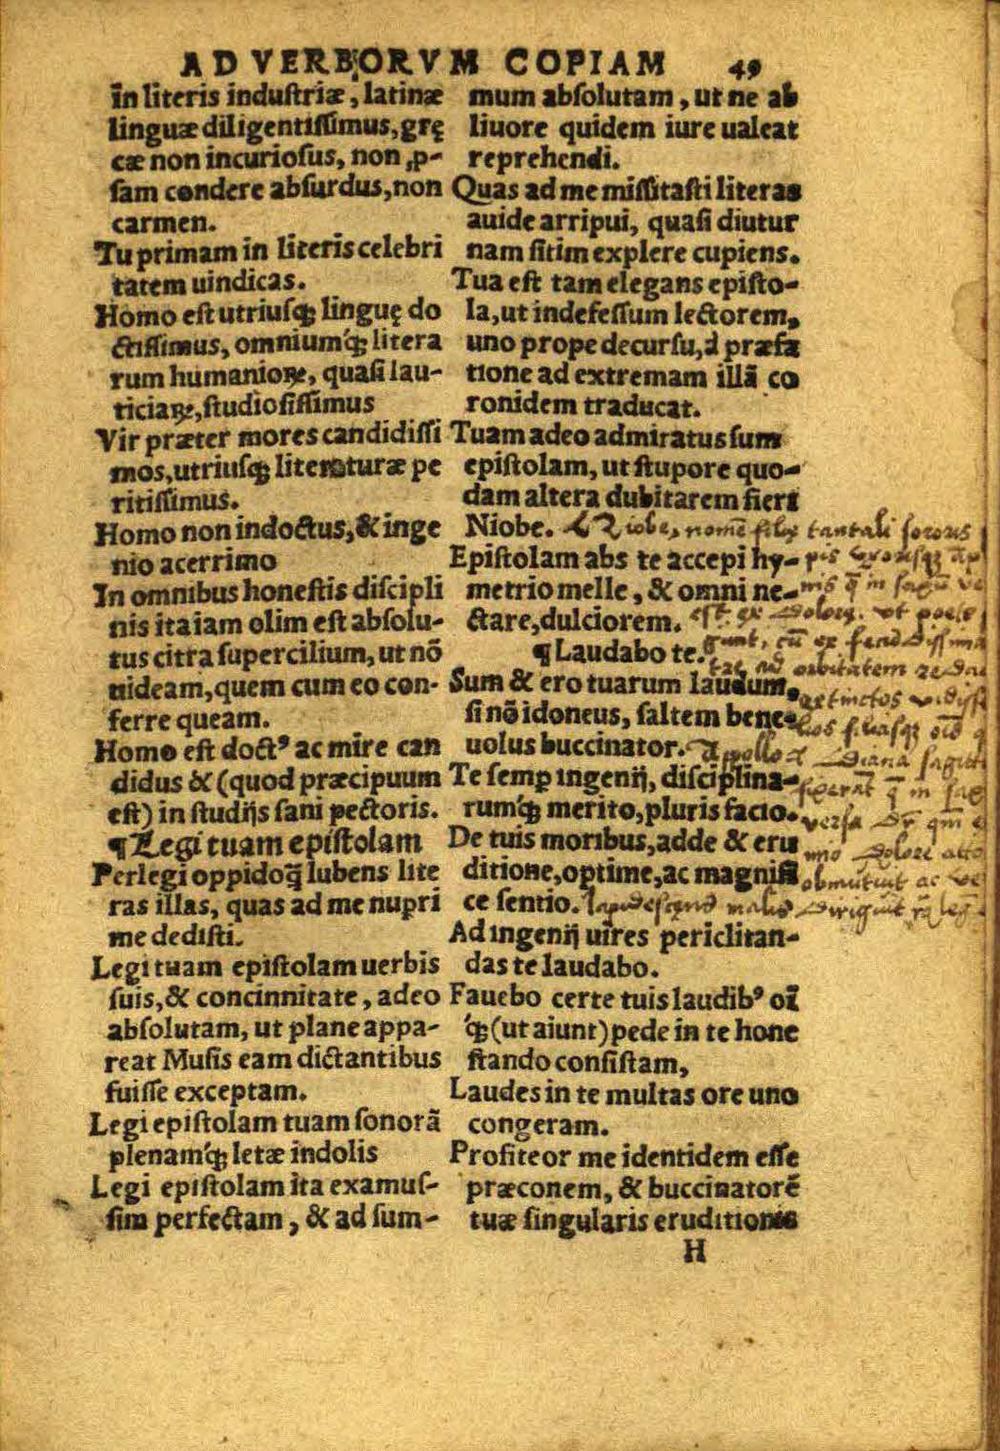 AD VERBORVM COPIAM 49
in literis industriæ, latinæ
linguæ diligentissimus, grę
cæ non incuriosus, non ꝓ-
sam condere absurdus, non
carmen.
Tu primam in literis celebri
tatem uindicas.
Homo est utriusq; linguę do
ctissimus, omniumq́; litera
rum humanioꝝ, quasi lau-
ticiaꝝ, studiosissimus
Vir præter mores candidissi
mos, utriusq; literaturæ pe
ritissimus.
Homo non indoctus, & inge
nio acerrimo
In omnibus honestis discipli
nis itaiam olim est absolu-
tus citra supercilium, ut nō
uideam, quem cum eo con-
ferre queam.
Homo est doctꝰ ac mire can
didus & (quod præcipuum
est) in studijs sani pectoris.
¶ Legi tuam epistolam
Perlegi oppidoq̄ lubens lite
ras illas, quas ad me nupri
me dedisti.
Legi tuam epistolam uerbis
suis, & concinnitate, adeo
absolutam, ut plane appa-
reat Musis eam dictantibus
fuisse exceptam.
Legi epistolam tuam sonorā
plenamq́; letæ indolis
Legi epistolam ita examus-
sim perfectam, & ad sum-
mum absolutam, ut ne ab
liuore quidem iure ualeat
reprehendi.
Quas ad me missitasti literas
auide arripui, quasi diutur
nam sitim explere cupiens.
Tua est tam elegans episto-
la, ut indefessum lectorem,
uno prope decursu, à præfa
tione ad extremam illā co
ronidem traducat.
Tuam adeo admiratus sum
epistolam, ut stupore quo-
dam altera dubitarem fieri
Niobe.
Epistolam abs te accepi hy-
metrio melle, & omni ne-
ctare, dulciorem.
¶ Laudabo te.
Sum & ero tuarum laudum,
si nō idoneus, saltem bene-
uolus buccinator.
Te semꝑ ingenij, disciplina-
rumq́; merito, pluris facio.
De tuis moribus, adde & eru
ditione, optime, ac magnifi
ce sentio.
Ad ingenij uires periclitan-
das te laudabo.
Fauebo certe tuis laudibꝰ oī
q́; (ut aiunt) pede in te hone
stando consistam,
Laudes in te multas ore uno
congeram.
Profiteor me identidem esse
præconem, & buccinatorē
tuæ singularis eruditionis
H